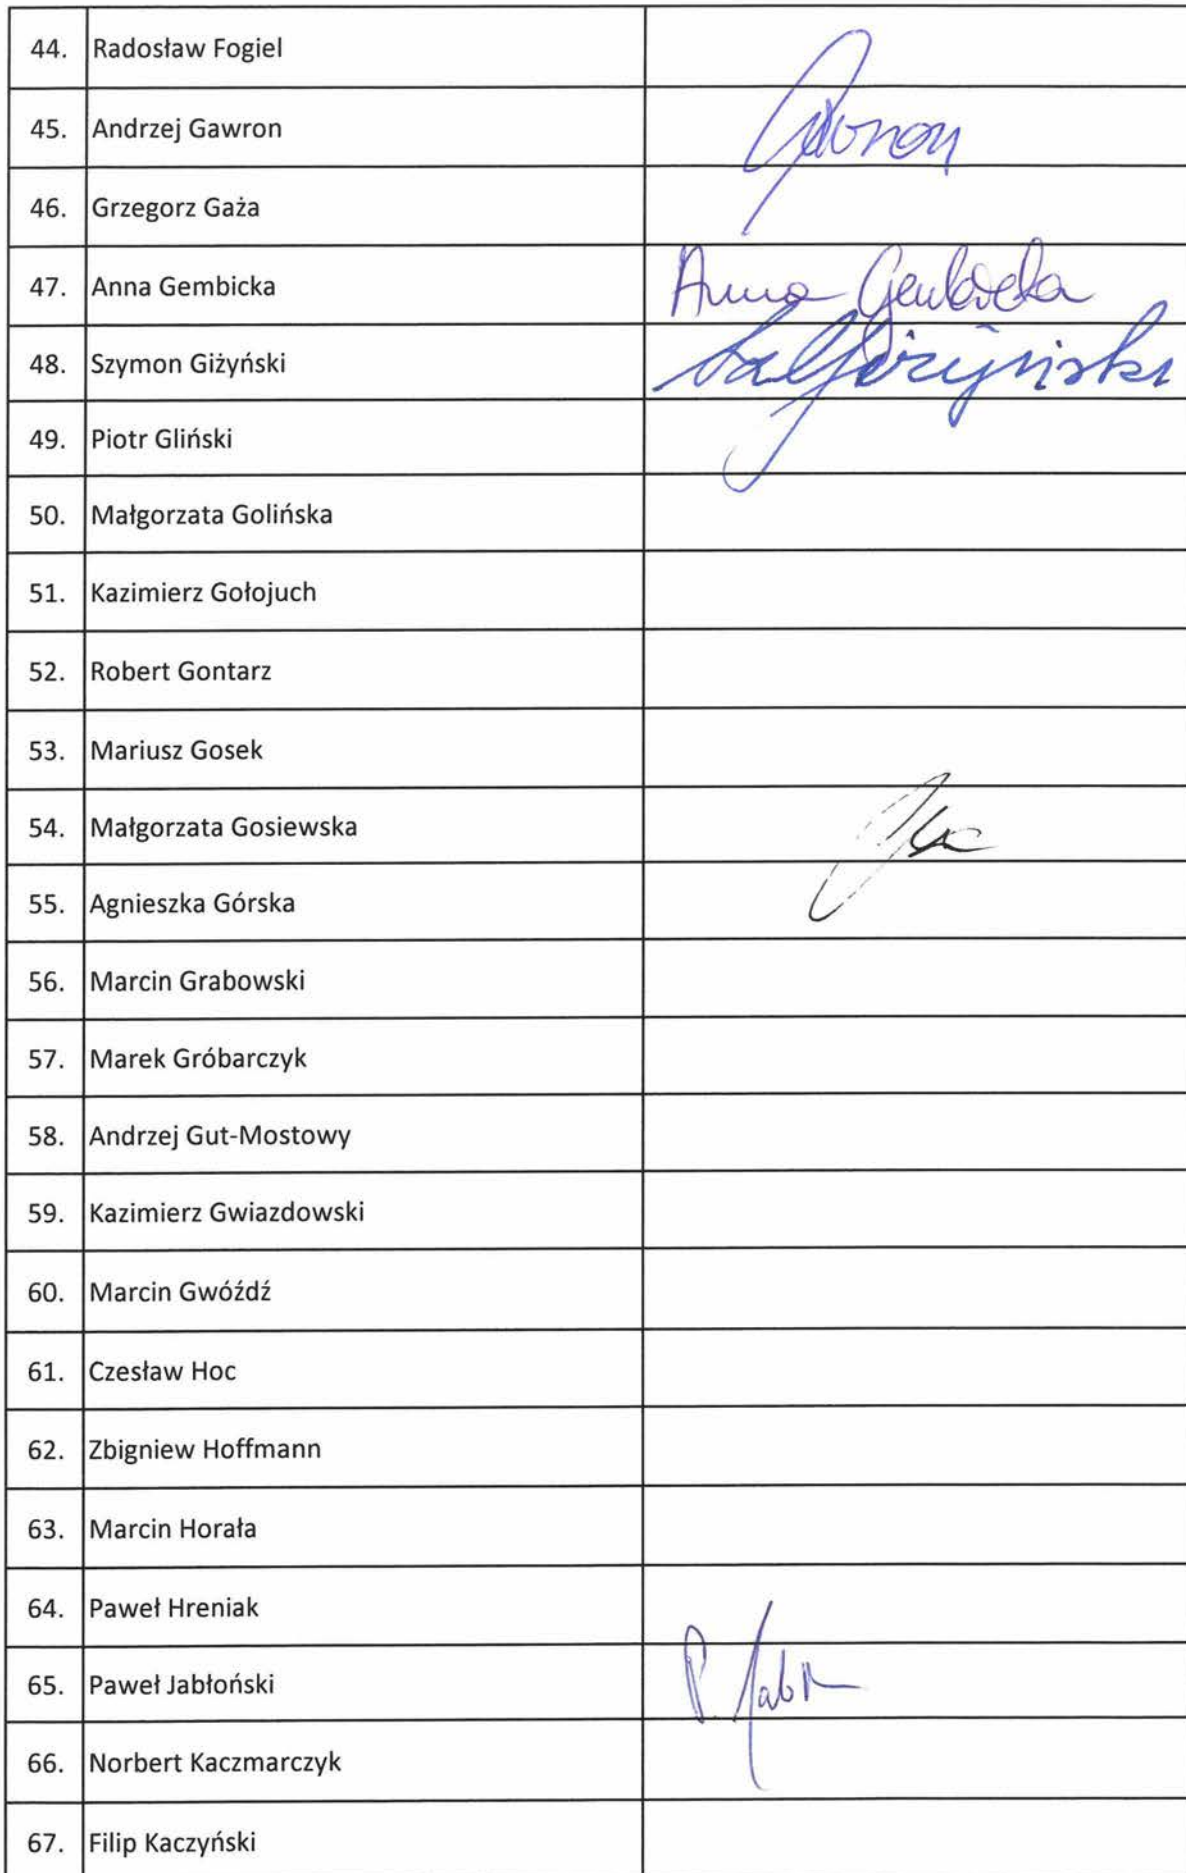 44. Radosław Fogiel
45. Andrzej Gawron Gawron
46. Grzegorz Gaża
47. Anna Gembicka Anna Gembicka
48. Szymon Giżyński Giżyński
49. Piotr Gliński
50. Małgorzata Golińska
51. Kazimierz Gołojuch
52. Robert Gontarz
53. Mariusz Gosek
54. Małgorzata Gosiewska
55. Agnieszka Górska
56. Marcin Grabowski
57. Marek Gróbarczyk
58. Andrzej Gut-Mostowy
59. Kazimierz Gwiazdowski
60. Marcin Gwóźdź
61. Czesław Hoc
62. Zbigniew Hoffmann
63. Marcin Horała
64. Paweł Hreniak
65. Paweł Jabłoński P. Jab
66. Norbert Kaczmarczyk
67. Filip Kaczyński